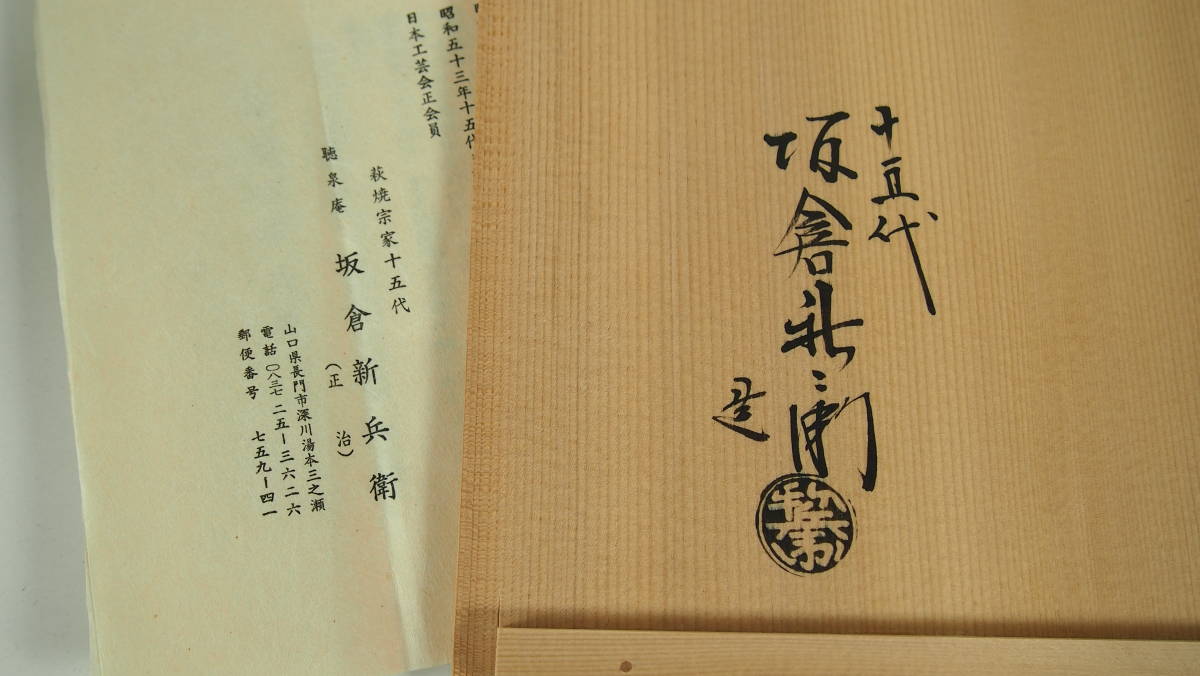 昭和五十三年十五代
日本工芸会正会員
萩焼宗家十五代
聴泉庵 坂倉新兵衛
(正治)
山口県長門市深川湯本三之瀬
電話〇八三七二五ー三六二六
郵便番号 七五九ー四一
十五代
坂倉新兵衛
造